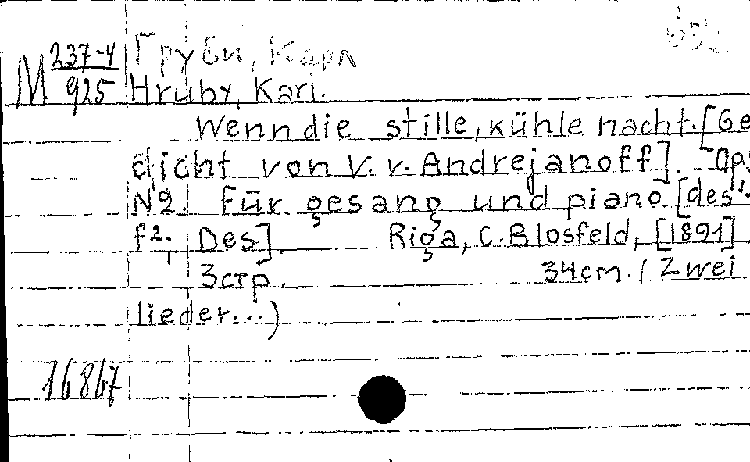 М 237-4/925 Груби, Карл
Hruby, Karl.
Wenn die stille, kühle nacht. [Ge
dicht von V. v. Andrejanoff]. Op.
№2. Für gesang und piano. [des'-
f2. Des]. Riga, C. Blosfeld, [1891]
3 стр. 34 cm. (Zwei
lieder...)
16867